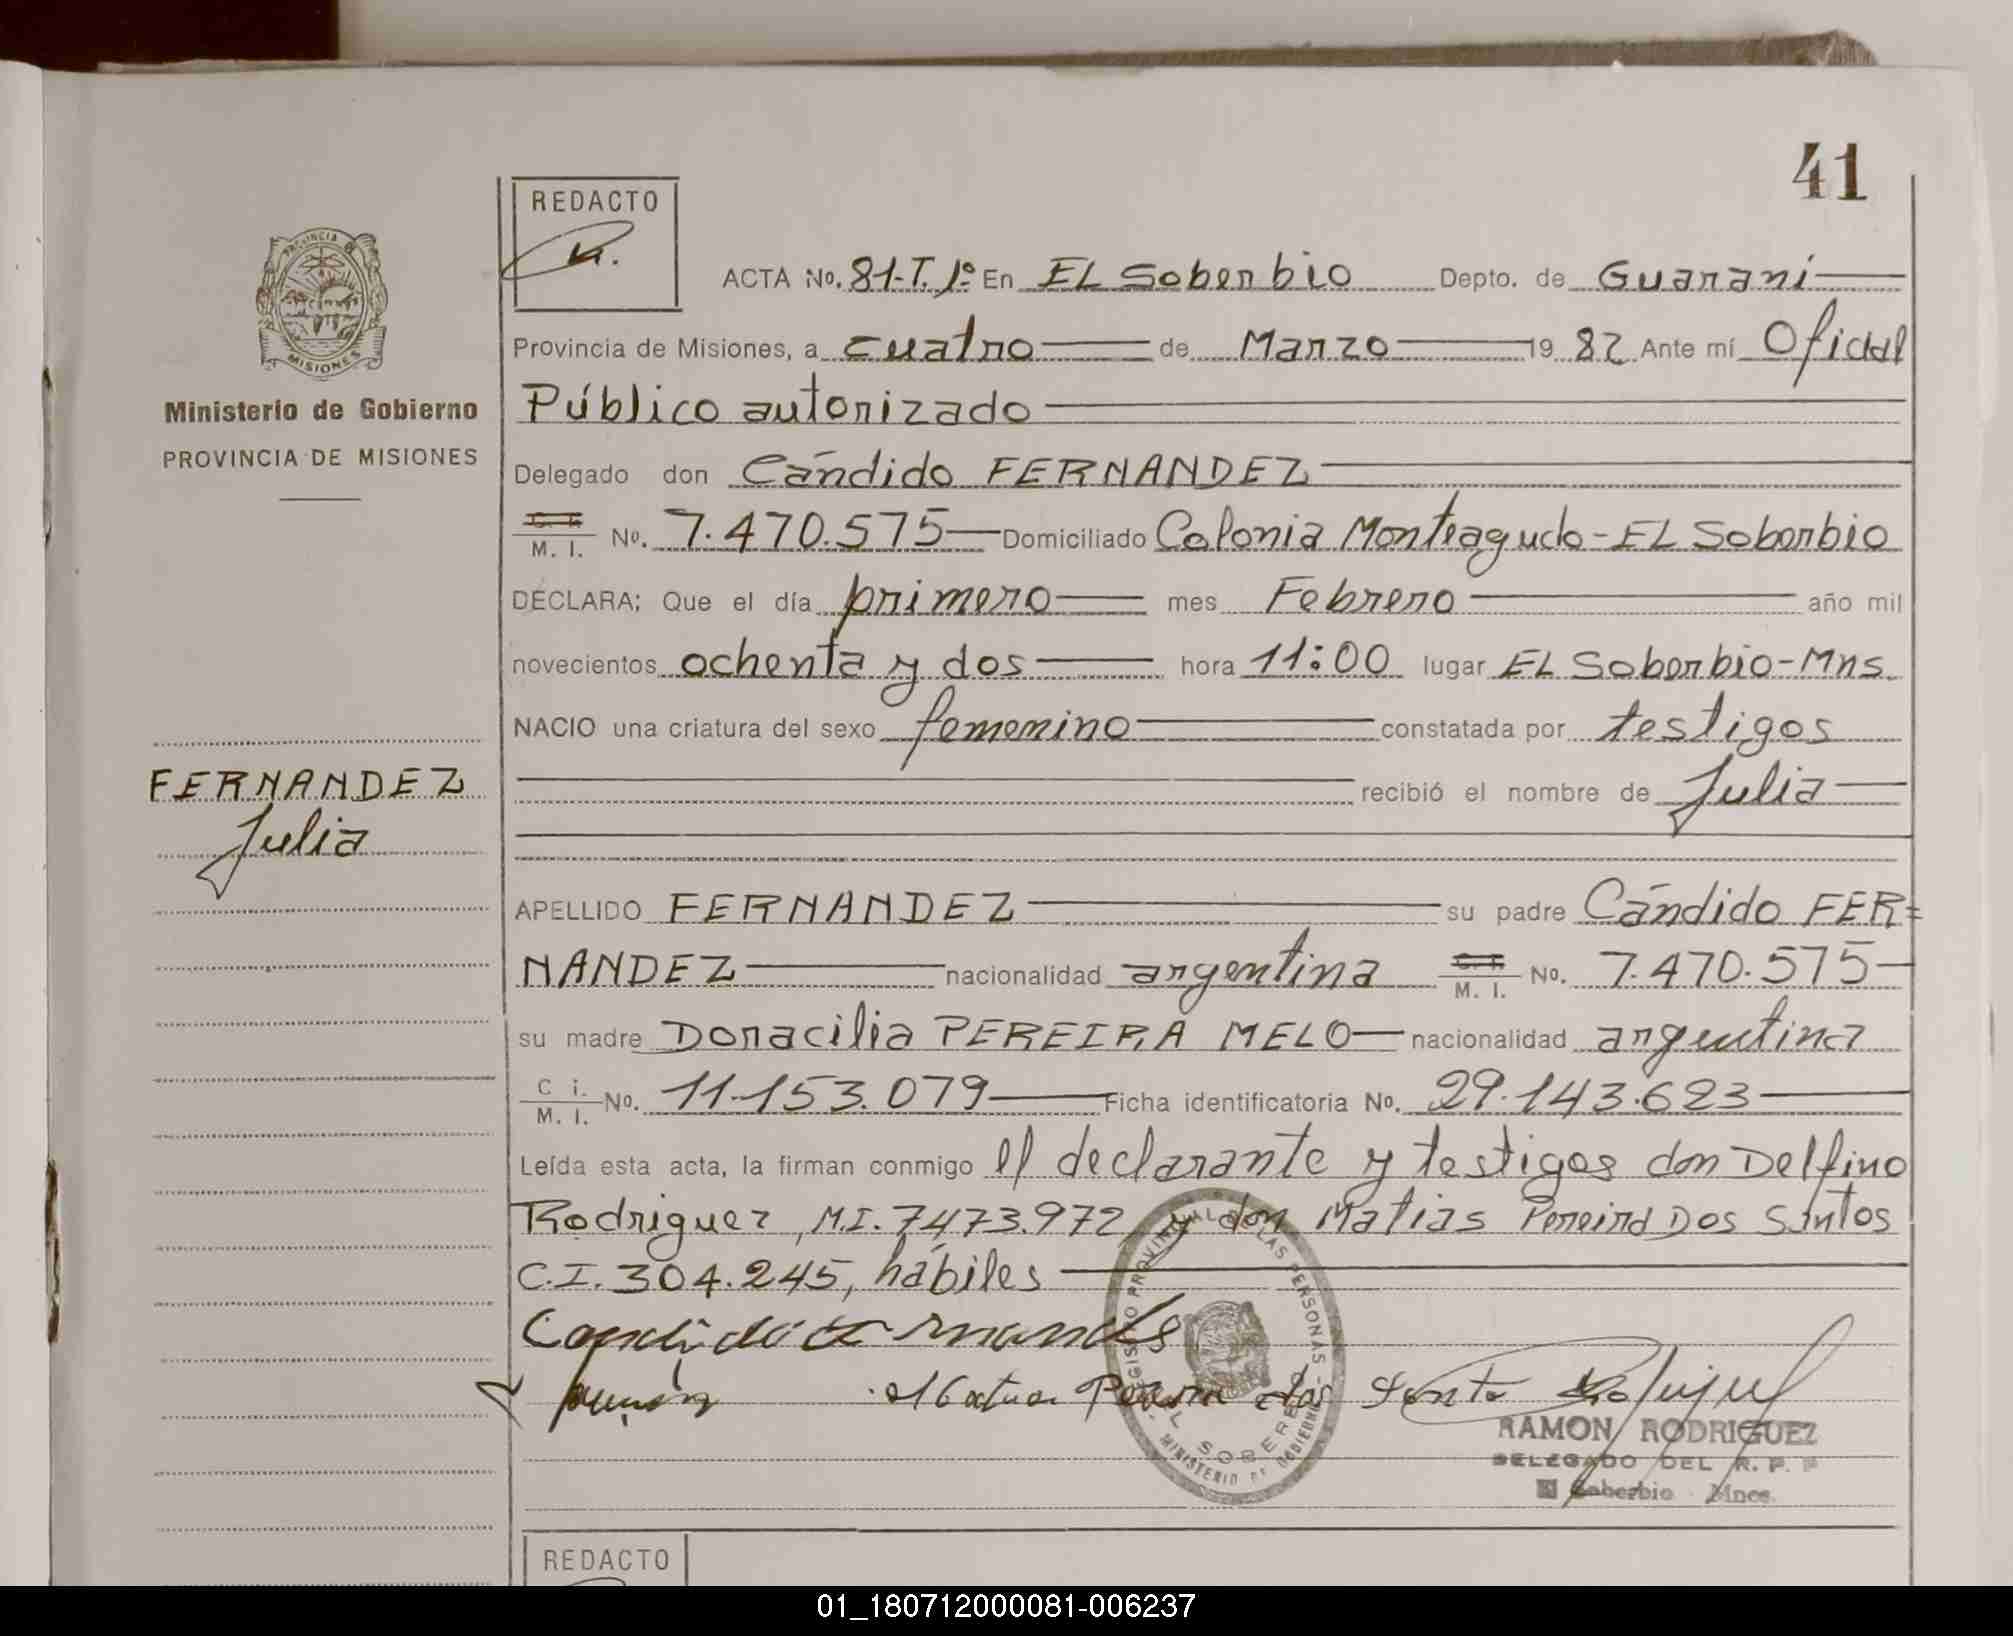 41
REDACTO
PROVINCIA DE
MISIONES
Ministerio de Gobierno
PROVINCIA DE MISIONES
FERNANDEZ
Julia
ACTA No. 81-T. 1º En EL Soberbio Depto. de Guaraní
Provincia de Misiones, a cuatro de Marzo 19 82 Ante mí Oficial
Público autorizado
Delegado don Cándido FERNANDEZ
M. I. No. 7.470.575 Domiciliado Colonia Monteagudo - EL Soberbio
DECLARA: Que el día primero mes Febrero año mil
novecientos ochenta y dos hora 11:00 lugar EL Soberbio - Mns.
NACIO una criatura del sexo femenino constatada por testigos
recibió el nombre de Julia
APELLIDO FERNANDEZ su padre Cándido FER=
NANDEZ nacionalidad argentina M. I. No. 7.470.575
su madre Doracilia PEREIRA MELO nacionalidad argentina
C i. M. I. No. 11.153.079 Ficha identificatoria No. 29.143.623
Leída esta acta, la firman conmigo el declarante y testigos don Delfino
Rodriguez, M.I. 7473.972 y don Matias Pereira Dos Santos
C.I. 304.245, hábiles
REGISTRO PROVINCIAL DE LAS PERSONAS
EL SOBERBIO
MINISTERIO DE GOBIERNO
RAMON RODRIGUEZ
DELEGADO DEL R. P. P
El Soberbio Mnes.
REDACTO
01_180712000081-006237